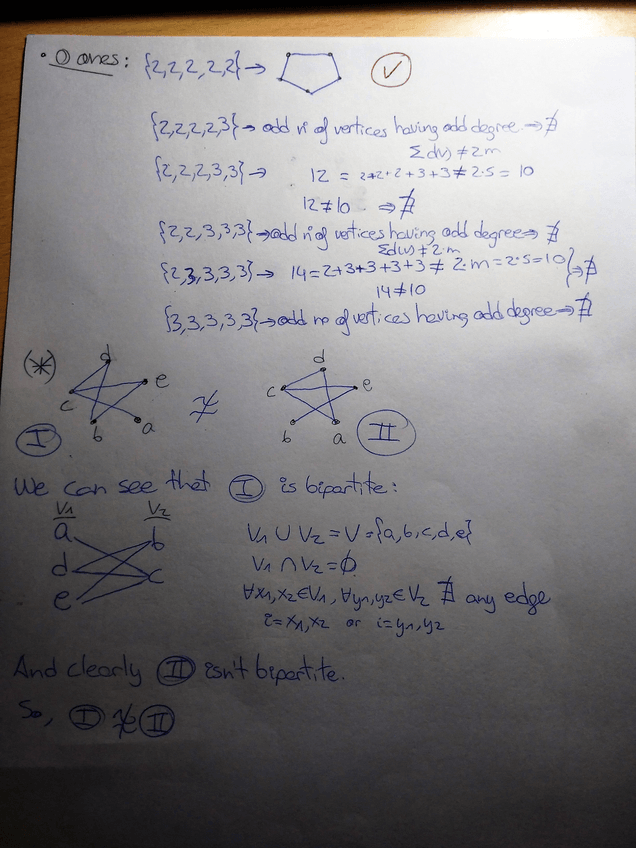 • 0 ones: {2,2,2,2,2} → ✓
{2,2,2,2,3} → odd nº of vertices having odd degree ⇒ ∄
Σd(v) ≠ 2m
{2,2,2,3,3} → 12 = 2+2+2+3+3 ≠ 2·5 = 10
12 ≠ 10 ⇒ ∄
{2,2,3,3,3} → odd nº of vertices having odd degree ⇒ ∄
Σd(v) ≠ 2·m
{2,3,3,3,3} → 14 = 2+3+3+3+3 ≠ 2·m = 2·5 = 10 } ⇒ ∄
14 ≠ 10
{3,3,3,3,3} → odd no of vertices having odd degree ⇒ ∄
(*) d e c b a ≄ d c e b a
I II
We can see that I is bipartite:
V1 V2
a b V1 ∪ V2 = V = {a,b,c,d,e}
d c V1 ∩ V2 = ∅
e ∀x1,x2 ∈ V1, ∀y1,y2 ∈ V2 ∄ any edge
i = x1,x2 or i = y1,y2
And clearly II isn't bipartite.
So, I ≄ II